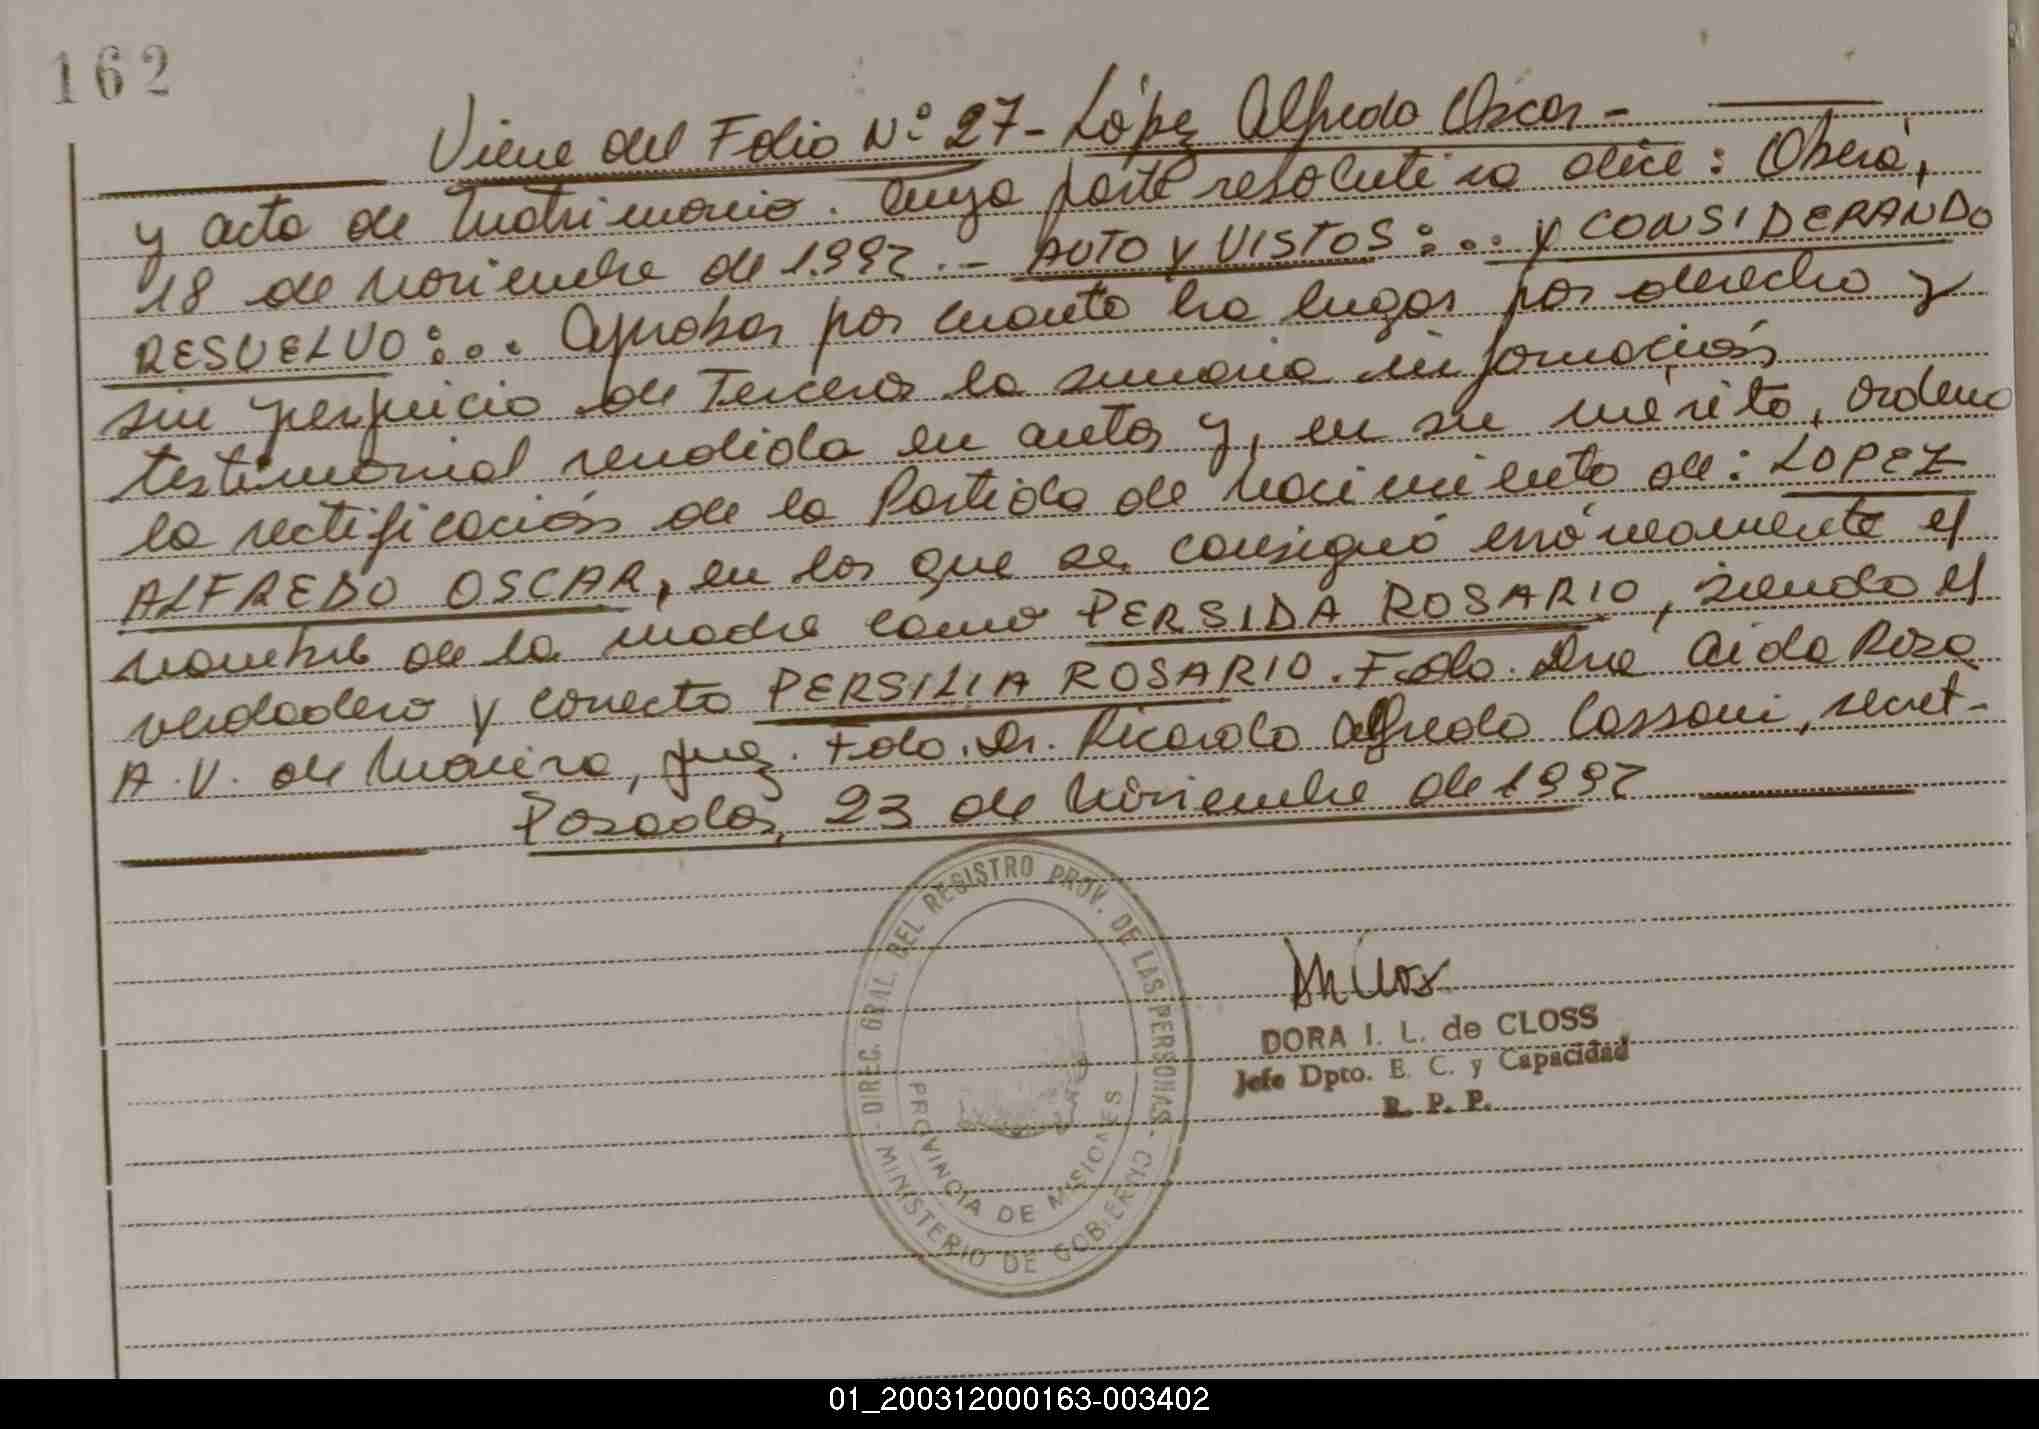 162
Viene del Folio Nº 27- López Alfredo Oscar -
y acta de Matrimonio. Cuya parte resolutiva dice: Oberá,
18 de Noviembre de 1992.- AUTO y VISTOS:.. y CONSIDERANDO
RESUELVO:... Aprobar por cuanto ha lugar por derecho y
sin perjuicio de Terceros la sumaria información
testimonial rendida en autos y, en su mérito, ordeno
la rectificación de la Partida de Nacimiento de: LOPEZ
ALFREDO OSCAR, en los que se consignó erróneamente el
nombre de la madre como PERSIDA ROSARIO, siendo el
verdadero y correcto PERSILIA ROSARIO. Fdo. Dra Aida Rosa
A.V. de Moreira, juez. Fdo. Dr. Ricardo Alfredo Cassoni, secret-
Posadas, 23 de Noviembre de 1992
- DIREC. GRAL. DEL REGISTRO PROV. DE LAS PERSONAS -
PROVINCIA DE MISIONES
MINISTERIO DE GOBIERNO
DORA I. L. de CLOSS
Jefe Dpto. E. C. y Capacidad
R. P. P.
01_200312000163-003402